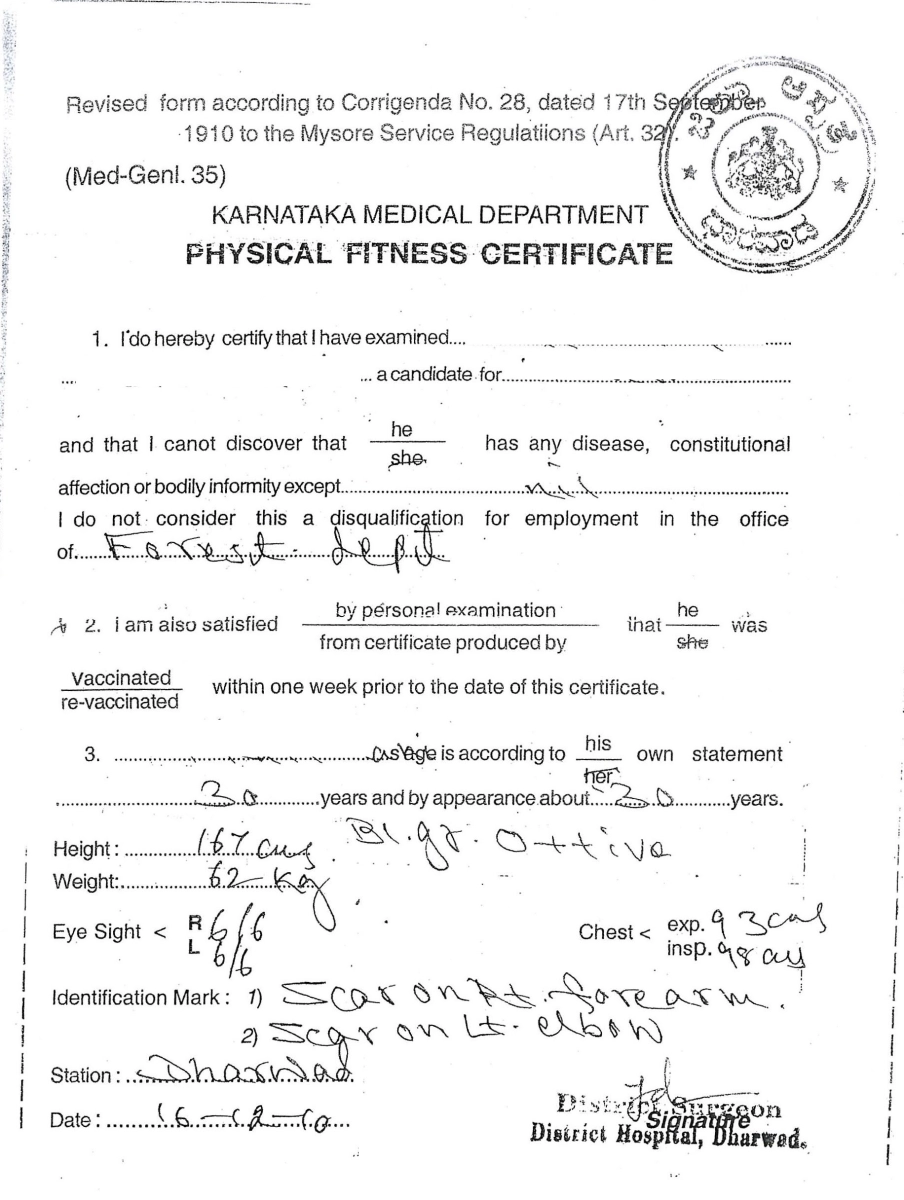 Revised form according to Corrigenda No. 28, dated 17th September
1910 to the Mysore Service Regulatiions (Art. 32).
ಜಿಲ್ಲಾ ಆಸ್ಪತ್ರೆ
ಧಾರವಾಡ
(Med-Genl. 35)
KARNATAKA MEDICAL DEPARTMENT
PHYSICAL FITNESS CERTIFICATE
1. I do hereby certify that I have examined....
... a candidate for
and that I canot discover that he/she has any disease, constitutional
affection or bodily informity except nil
I do not consider this a disqualification for employment in the office
of Forest dept
2. I am also satisfied by personal examination / from certificate produced by that he/she was
Vaccinated/re-vaccinated within one week prior to the date of this certificate.
3. age is according to his/her own statement
30 years and by appearance about 30 years.
Height : 167 cms Bl. gr. O +tive
Weight: 62 Kg
Eye Sight < R 6/6 Chest < exp. 93 cms
L 6/6 insp. 98 cms
Identification Mark : 1) Scar on Rt. forearm.
2) Scar on Lt. elbow
Station : Dharwad
Date : 16-12-10
District Surgeon
Signature
District Hospital, Dharwad.